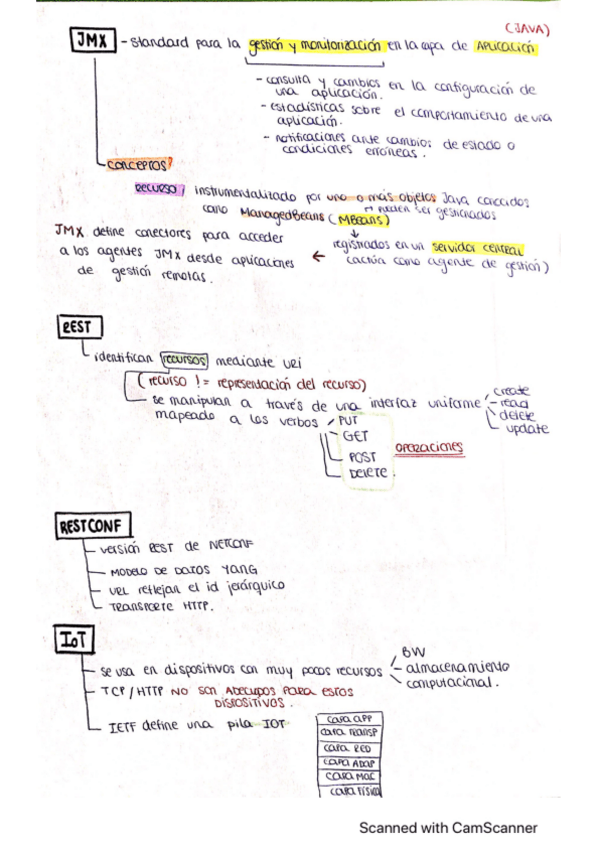 (JAVA)
JMX - Standard para la gestión y monitorización en la capa de APLICACIÓN
- consulta y cambios en la configuración de
una aplicación.
- estadísticas sobre el comportamiento de una
aplicación.
- notificaciones ante cambios de estado o
condiciones erróneas.
CONCEPTOS
RECURSO instrumentalizado por uno o más objetos Java conocidos
como ManagedBeans (MBeans) → pueden ser gestionados
registrados en un servidor central
(actúa como agente de gestión)
←
JMX define conectores para acceder
a los agentes JMX desde aplicaciones
de gestión remotas.
REST
identifican recursos mediante URI
(recurso != representación del recurso)
se manipulan a través de una interfaz uniforme
- create
- read
- delete
- update
mapeado a los verbos
PUT
GET
POST
DELETE.
OPERACIONES
RESTCONF
versión REST de NETCONF
MODELO DE DATOS YANG
URL reflejan el id jerárquico
TRANSPORTE HTTP.
IoT
se usa en dispositivos con muy pocos recursos
BW
almacenamiento
computacional.
TCP/HTTP NO SON ADECUADOS PARA ESTOS
DISPOSITIVOS.
IETF define una pila IOT
CAPA APP
CAPA TRANSP
CAPA RED
CAPA ADAP
CAPA MAC
CAPA FÍSICA
Scanned with CamScanner